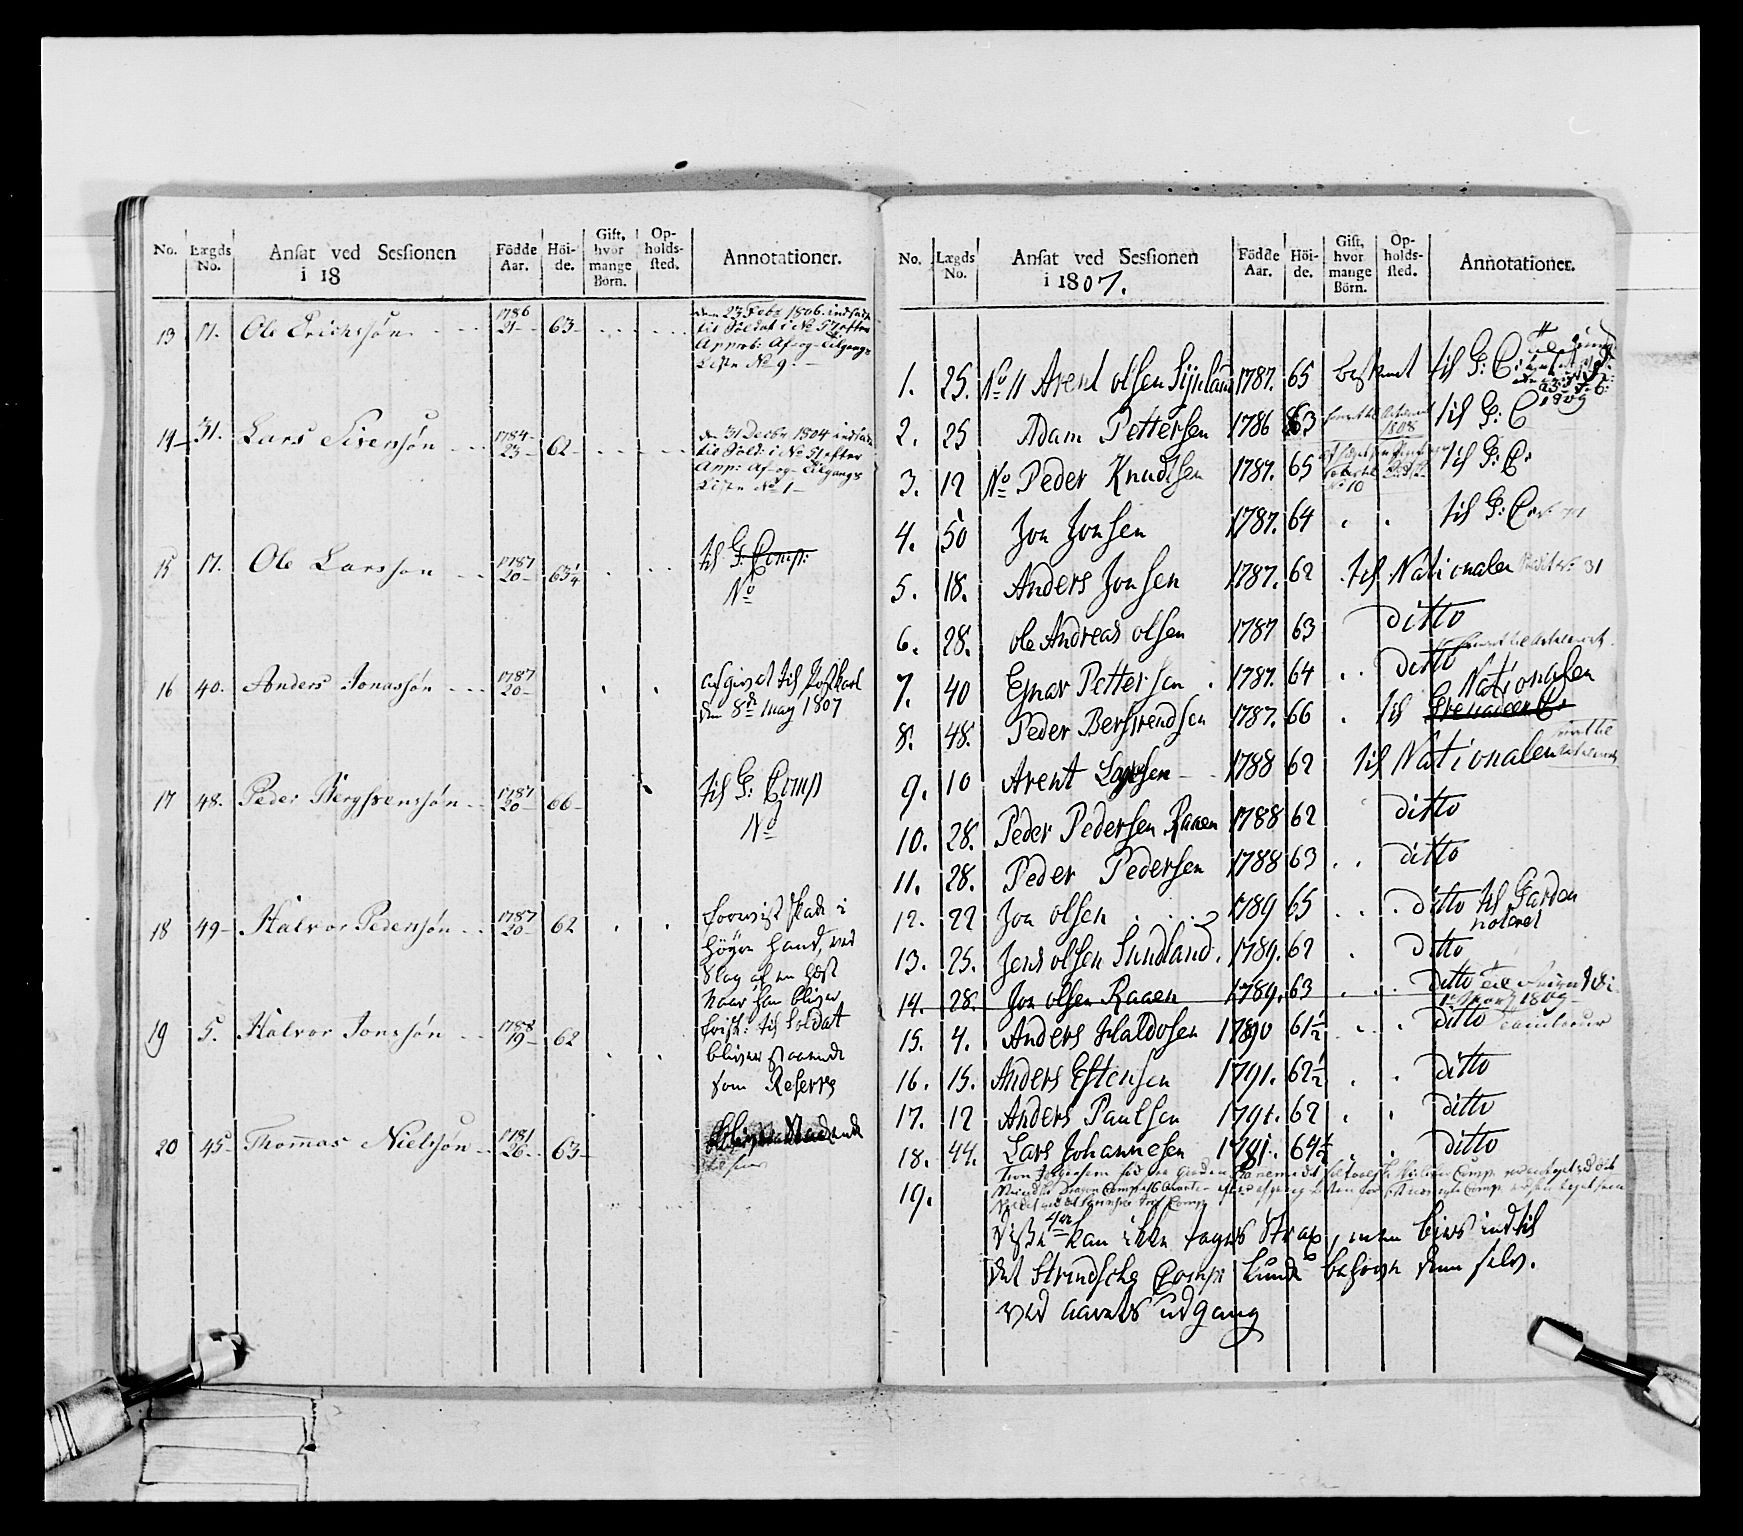 No. Lægds No. Ansat ved Sessionen i 18 Födde Aar. Höi-de. Gift, hvor mange Börn. Op-holds-sted. Annotationer.
13 11. Ole Erichssøn 1786 21 63
den 23 Febr 1806 indsadt
til Soldat i No 57 efter
Approb: Af- og Tilgangs
Liste No 9.
14 31. Lars Sivensøn 1784 23 62
den 31 Decbr 1804 indsadt
til Sold: i No 51 efter
App: Af- og Tilgangs
Liste No 1
15 11. Ole Larssøn 1787 20 63 1/4 til G: Comp:
No
16 40. Anders Jonassøn 1787 20
afgivet til Postkarl
den 8de May 1807
17 48. Peder Bergsvenssøn 1787 20 66 til G: Comp
No
18 49 Halvor Pedersøn 1787 20 62
forevist skade i
høyre Hand, ved
Slag af en Hest
naar han bliver
frisk: til Soldat
19 5. Halvor Jonssøn 1788 19 62
bliver staaende
som Reserve
20 45 Thomas Nielssøn 1781 26 63
No. Lægds No. Ansat ved Sessionen i 1807. Födde Aar. Höi-de. Gift, hvor mange Börn. Op-holds-sted. Annotationer.
1. 25. No 11 Arent Olsen 1787. 65 bestemt til G: C:
1809
2. 25 Adam Pettersen 1786 63 1808 til G: C
3. 12 No Peder Knudtsen 1787. 65 No 10 til G: C:
4. 50 Jon Jonsen 1787. 64 til G: C
5. 18. Anders Jonsen 1787. 62 til Nationalen 31
6. 28. Ole Andreas Olsen 1787 63 ditto
7. 40 Ejnar Pettersen 1787. 64 ditto
Nationalen
8. 48. Peder Bersvendsen 1787. 66 til Grenadeer C:
9. 10 Arent Larsen 1788 62 til Nationalen
10. 28. Peder Pedersen Raaen 1788 62 ditto
11. 28. Peder Pedersen 1788 63 ditto
12. 22 Jon Olsen 1789 65 ditto til Garden
noteret
13. 25. Jens Olsen Sundland. 1789. 62 ditto
14. 28. Jon Olsen Raaen 1789. 63 ditto
1809
15. 4. Anders Haldosen 1790 61 1/2 ditto Tambour
16. 15. Anders Estensen 1791. 62 1/2 ditto
17. 12 Anders Paulsen 1791. 62 ditto
18. 44. Lars Johannesen 1791. 64 1/2 ditto
19.
disse 4re kan ikke tages strax, men bies indtil
det Strindske Comp: kunde behøve dem selv.
ved aarets udgang